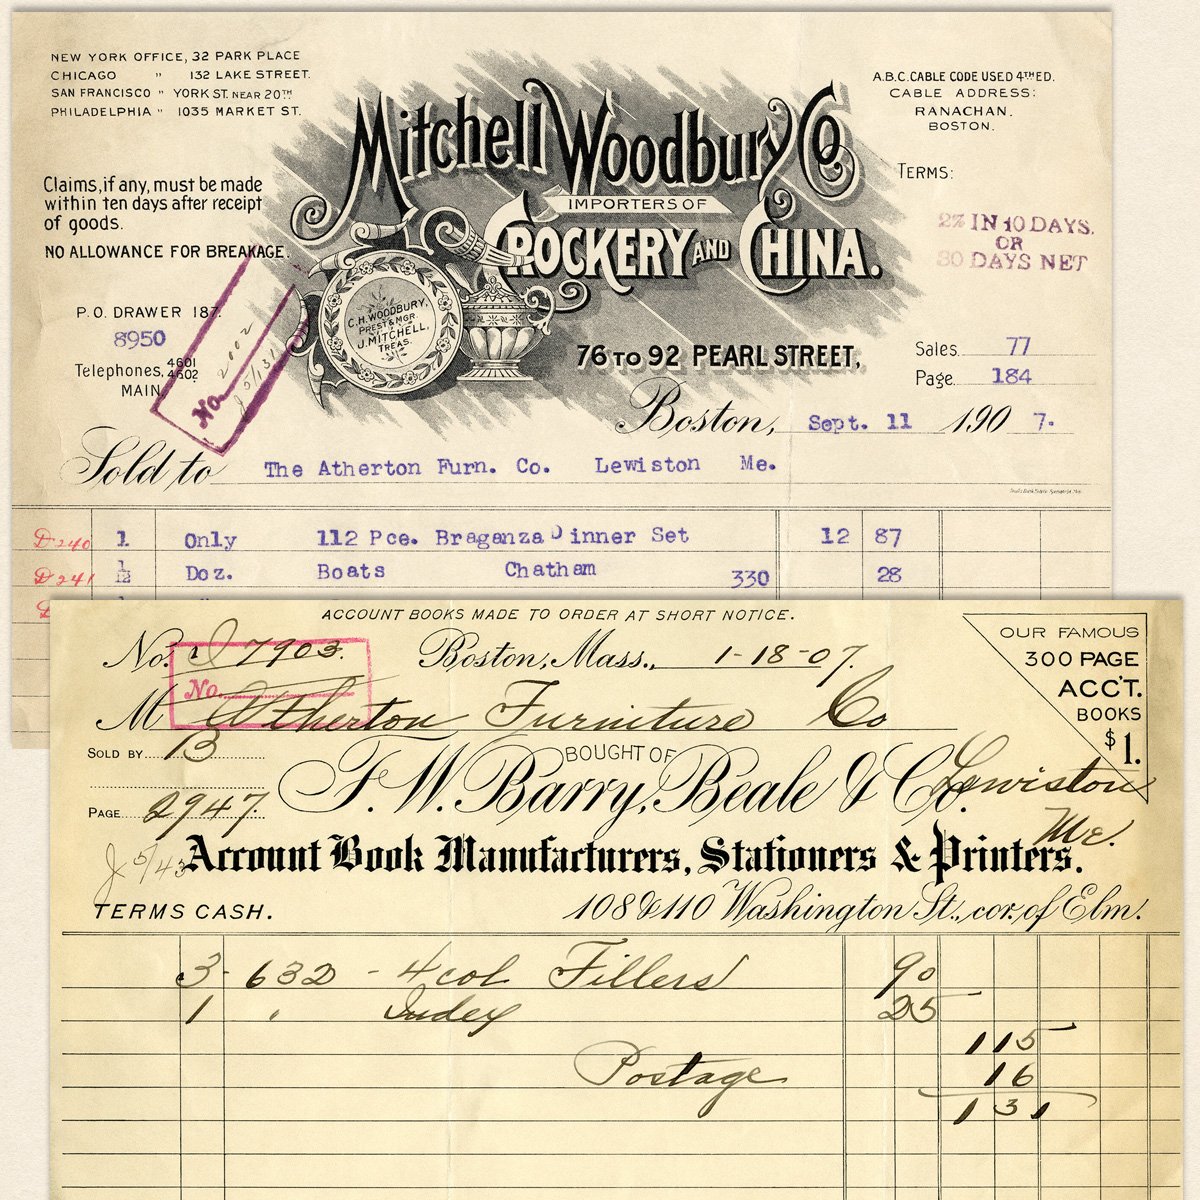 NEW YORK OFFICE, 32 PARK PLACE
CHICAGO " 132 LAKE STREET.
SAN FRANCISCO " YORK ST. NEAR 20TH
PHILADELPHIA " 1035 MARKET ST.
A.B.C. CABLE CODE USED 4TH ED.
CABLE ADDRESS:
RANACHAN.
BOSTON.
Mitchell Woodbury Co.
IMPORTERS OF
CROCKERY AND CHINA.
Claims, if any, must be made
within ten days after receipt
of goods.
NO ALLOWANCE FOR BREAKAGE.
TERMS:
2% IN 10 DAYS.
OR
30 DAYS NET
C.H. WOODBURY,
PREST & MGR.
J. MITCHELL,
TREAS.
P.O. DRAWER 187.
8950
Telephones, 4601
4602
MAIN.
No. 2002
76 TO 92 PEARL STREET,
Sales 77
Page. 184
Boston, Sept. 11 1907.
Sold to The Atherton Furn. Co. Lewiston Me.
D240 1 Only 112 Pce. Braganza Dinner Set 12 87
D241 1/12 Doz. Boats Chatham 330 28
ACCOUNT BOOKS MADE TO ORDER AT SHORT NOTICE.
No. 7903. Boston, Mass., 1-18-07.
No.
M Atherton Furniture Co
Lewiston
Me.
OUR FAMOUS
300 PAGE
ACC'T.
BOOKS
$1.
SOLD BY 13
BOUGHT OF
F. W. Barry, Beale & Co.
PAGE 2947
J 5/43
Account Book Manufacturers, Stationers & Printers.
TERMS CASH.
108 & 110 Washington St., cor. of Elm.
3 - 632 - 4 col Fillers 90
1 " Index 25
115
Postage 16
131